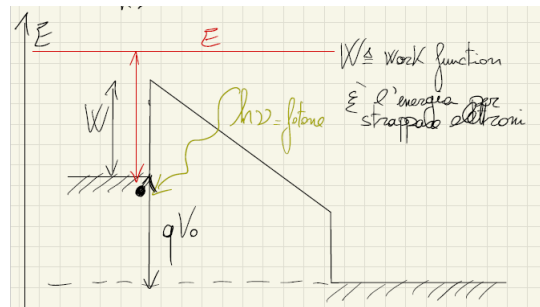 E
E
W≜ work function
È l'energia per
strappare elettroni
W
hν = fotone
qV₀